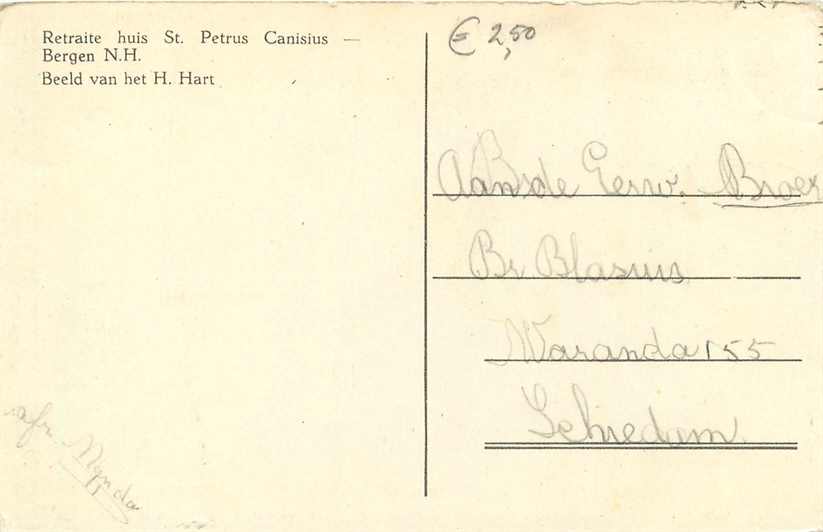 Retraite huis St. Petrus Canisius —
Bergen N.H.
Beeld van het H. Hart
€ 2,50
Aan de Eerw. Broer
Br. Blasius
Waranda 155
Schiedam
afz.